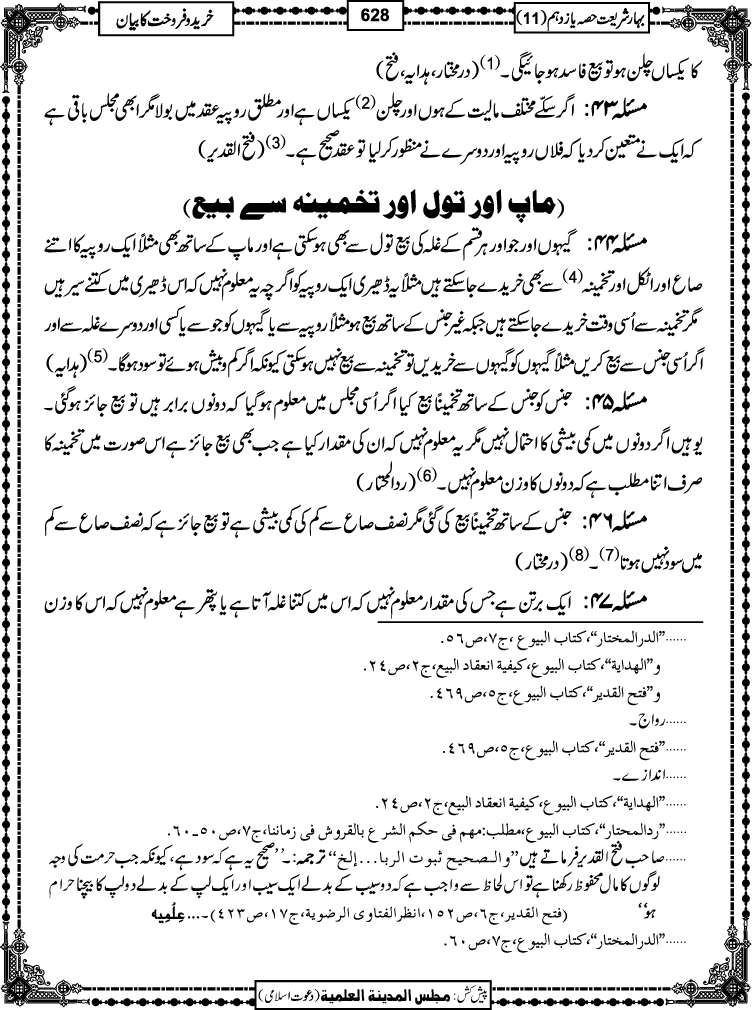 بہارِ شریعت حصہ یازدہم (11)
628
خرید و فروخت کا بیان
کا یکساں چلن ہو تو بیع فاسد ہو جائیگی۔(1) (درمختار، ہدایہ، فتح)
مسئلہ ۴۳: اگر سکّے مختلف مالیت کے ہوں اور چلن(2) یکساں ہے اور مطلق روپیہ عقد میں بولا مگر ابھی مجلس باقی ہے
کہ ایک نے متعین کر دیا کہ فلاں روپیہ اور دوسرے نے منظور کر لیا تو عقد صحیح ہے۔(3) (فتح القدیر)
(ماپ اور تول اور تخمینہ سے بیع)
مسئلہ ۴۴: گیہوں اور جو اور ہر قسم کے غلہ کی بیع تول سے بھی ہوسکتی ہے اور ماپ کے ساتھ بھی مثلاً ایک روپیہ کا اتنے
صاع اور اٹکل اور تخمینہ(4) سے بھی خریدے جاسکتے ہیں مثلاً یہ ڈھیری ایک روپیہ کو اگرچہ یہ معلوم نہیں کہ اس ڈھیری میں کتنے سیر ہیں
مگر تخمینہ سے اُسی وقت خریدے جاسکتے ہیں جبکہ غیر جنس کے ساتھ بیع ہو مثلاً روپیہ سے یا گیہوں کو جو سے یا کسی اور دوسرے غلہ سے اور
اگر اُسی جنس سے بیع کریں مثلاً گیہوں کو گیہوں سے خریدیں تو تخمینہ سے بیع نہیں ہوسکتی کیونکہ اگر کم و بیش ہوئے تو سود ہوگا۔(5) (ہدایہ)
مسئلہ ۴۵: جنس کو جنس کے ساتھ تخمیناً بیع کیا اگر اُسی مجلس میں معلوم ہوگیا کہ دونوں برابر ہیں تو بیع جائز ہوگئی۔
یوہیں اگر دونوں میں کمی بیشی کا احتمال نہیں مگر یہ معلوم نہیں کہ ان کی مقدار کیا ہے جب بھی بیع جائز ہے اس صورت میں تخمینہ کا
صرف اتنا مطلب ہے کہ دونوں کا وزن معلوم نہیں۔(6) (ردالمحتار)
مسئلہ ۴۶: جنس کے ساتھ تخمیناً بیع کی گئی مگر نصف صاع سے کم کی کمی بیشی ہے تو بیع جائز ہے کہ نصف صاع سے کم
میں سود نہیں ہوتا(7)۔(8) (درمختار)
مسئلہ ۴۷: ایک برتن ہے جس کی مقدار معلوم نہیں کہ اس میں کتنا غلہ آتا ہے یا پتھر ہے معلوم نہیں کہ اس کا وزن
......”الدرالمختار“،کتاب البیوع ،ج۷،ص۵۶.
و”الھدایۃ“،کتاب البیوع،کیفیۃ انعقاد البیع،ج۲،ص۲۴.
و”فتح القدیر“،کتاب البیوع،ج۵،ص۴۶۹.
......رواج۔
......”فتح القدیر“،کتاب البیوع،ج۵،ص۴۶۹.
......اندازے۔
......”الھدایۃ“،کتاب البیوع،کیفیۃ انعقاد البیع،ج۲،ص۲۴.
......”ردالمحتار“،کتاب البیوع،مطلب:مھم فی حکم الشرع بالقروش فی زماننا،ج۷،ص۵۰۔۶۰.
......صاحب فتح القدیر فرماتے ہیں ”والصحیح ثبوت الربا...إلخ“ ترجمہ:۔”صحیح یہ ہے کہ سود ہے، کیونکہ جب حرمت کی وجہ
لوگوں کا مال محفوظ رکھنا ہے تو اس لحاظ سے واجب ہے کہ دو سیب کے بدلے ایک سیب اور ایک لپ کے بدلے دو لپ کا بیچنا حرام
ہو“ (فتح القدیر،ج۶،ص۱۵۲،انظرالفتاوی الرضویۃ،ج۱۷،ص۴۲۳)۔... عِلْمِیہ
......”الدرالمختار“،کتاب البیوع،ج۷،ص۶۰.
پیش کش: مجلس المدینۃ العلمیۃ (دعوت اسلامی)